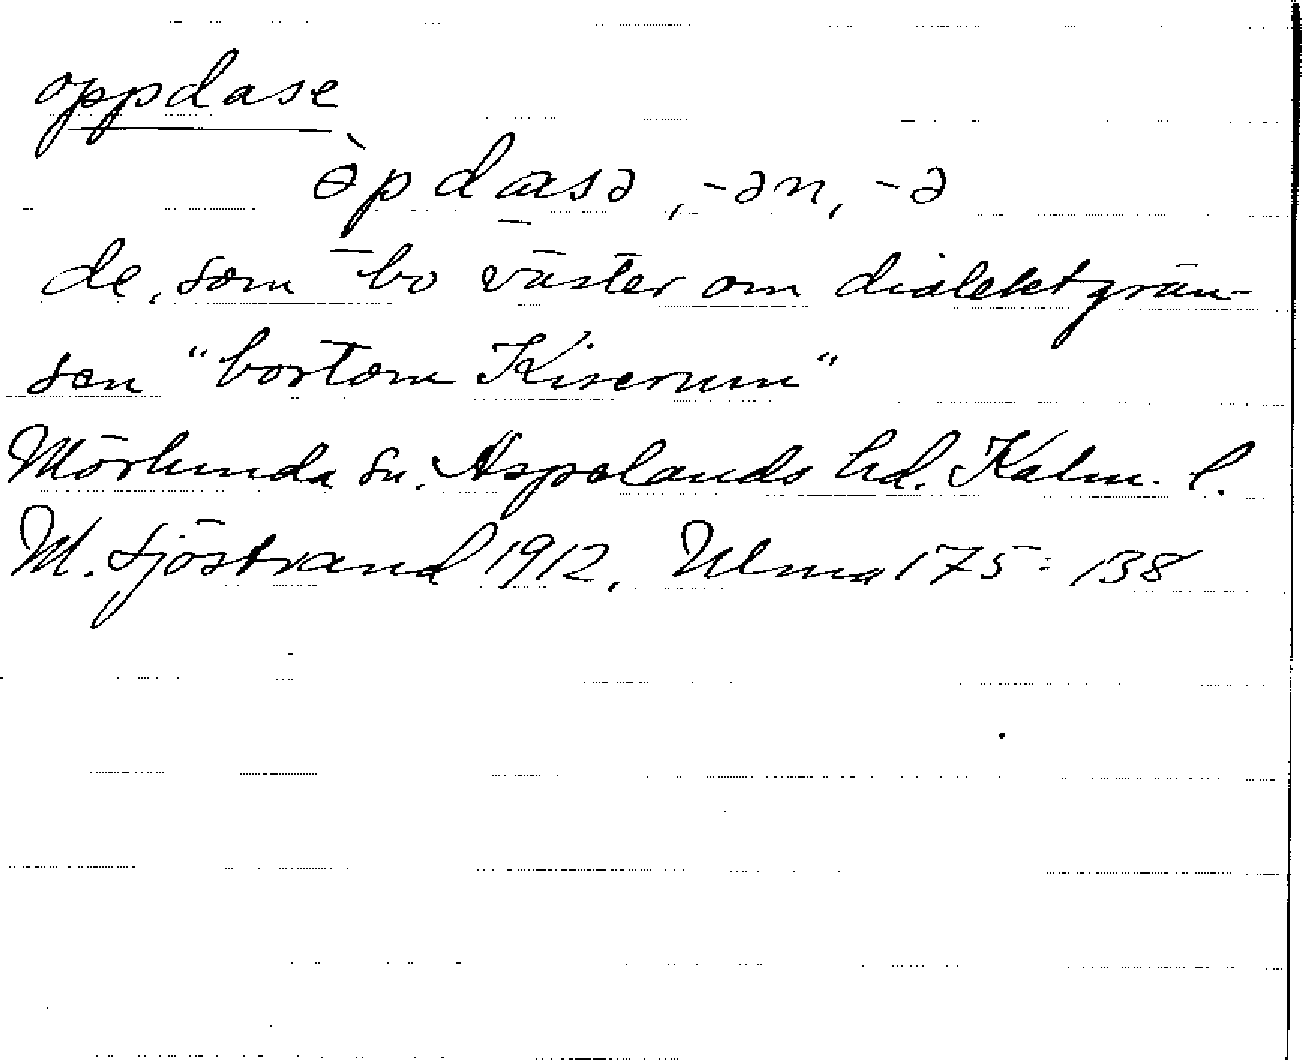 oppdase
ɵ̀pdasə, -ən, -ə
de, som bo väster om dialektgrän-
sen "bortom Kiserum"
Mörlunda sn. Aspelands hd. Kalm. l.
M. Sjöstrand 1912. Ulma 175: 138